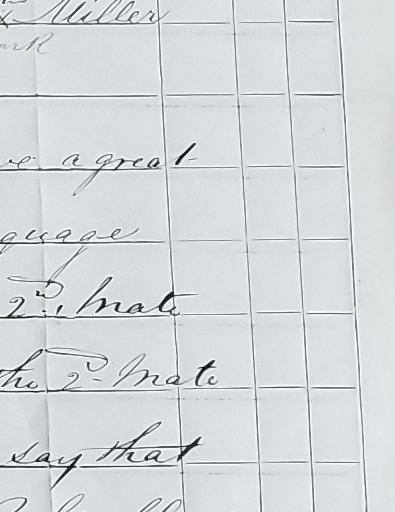 x Miller
ark
ve a great
guage
2nd. Mate
the 2d Mate
say that